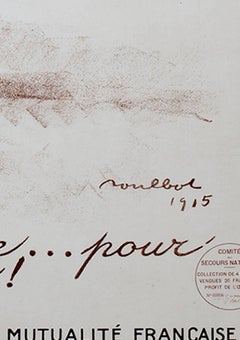 roulbot
1915
e... pour
!
COMITÉ
SECOURS NAT
COLLECTION DE 4
VENDUES 20 FRAN
PROFIT DE L'O
MUTUALITÉ FRANÇAISE